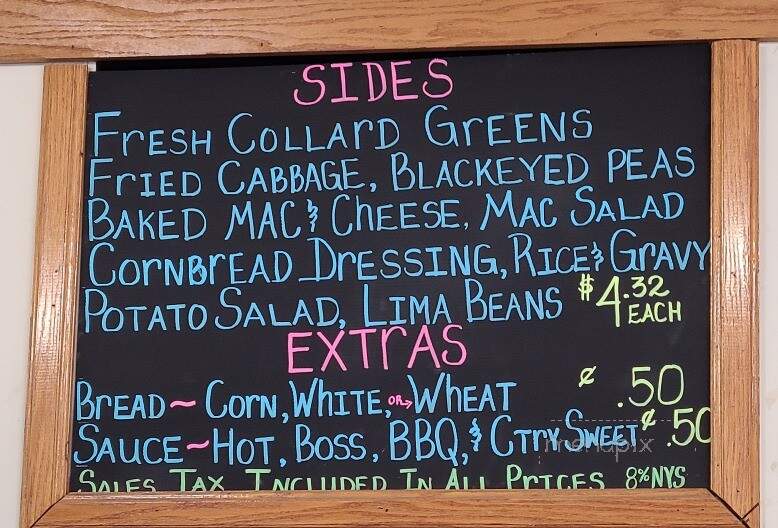 SIDES
FRESH COLLARD GREENS
FRIED CABBAGE, BLACKEYED PEAS
BAKED MAC & CHEESE, MAC SALAD
CORNBREAD DRESSING, RICE & GRAVY
POTATO SALAD, LIMA BEANS $4.32 EACH
EXTRAS
BREAD ~ CORN, WHITE, OR→ WHEAT ¢ .50
SAUCE ~ HOT, BOSS, BBQ, & CTRY SWEET ¢ .50
SALES TAX INCLUDED IN ALL PRICES 8% NYS
menupix